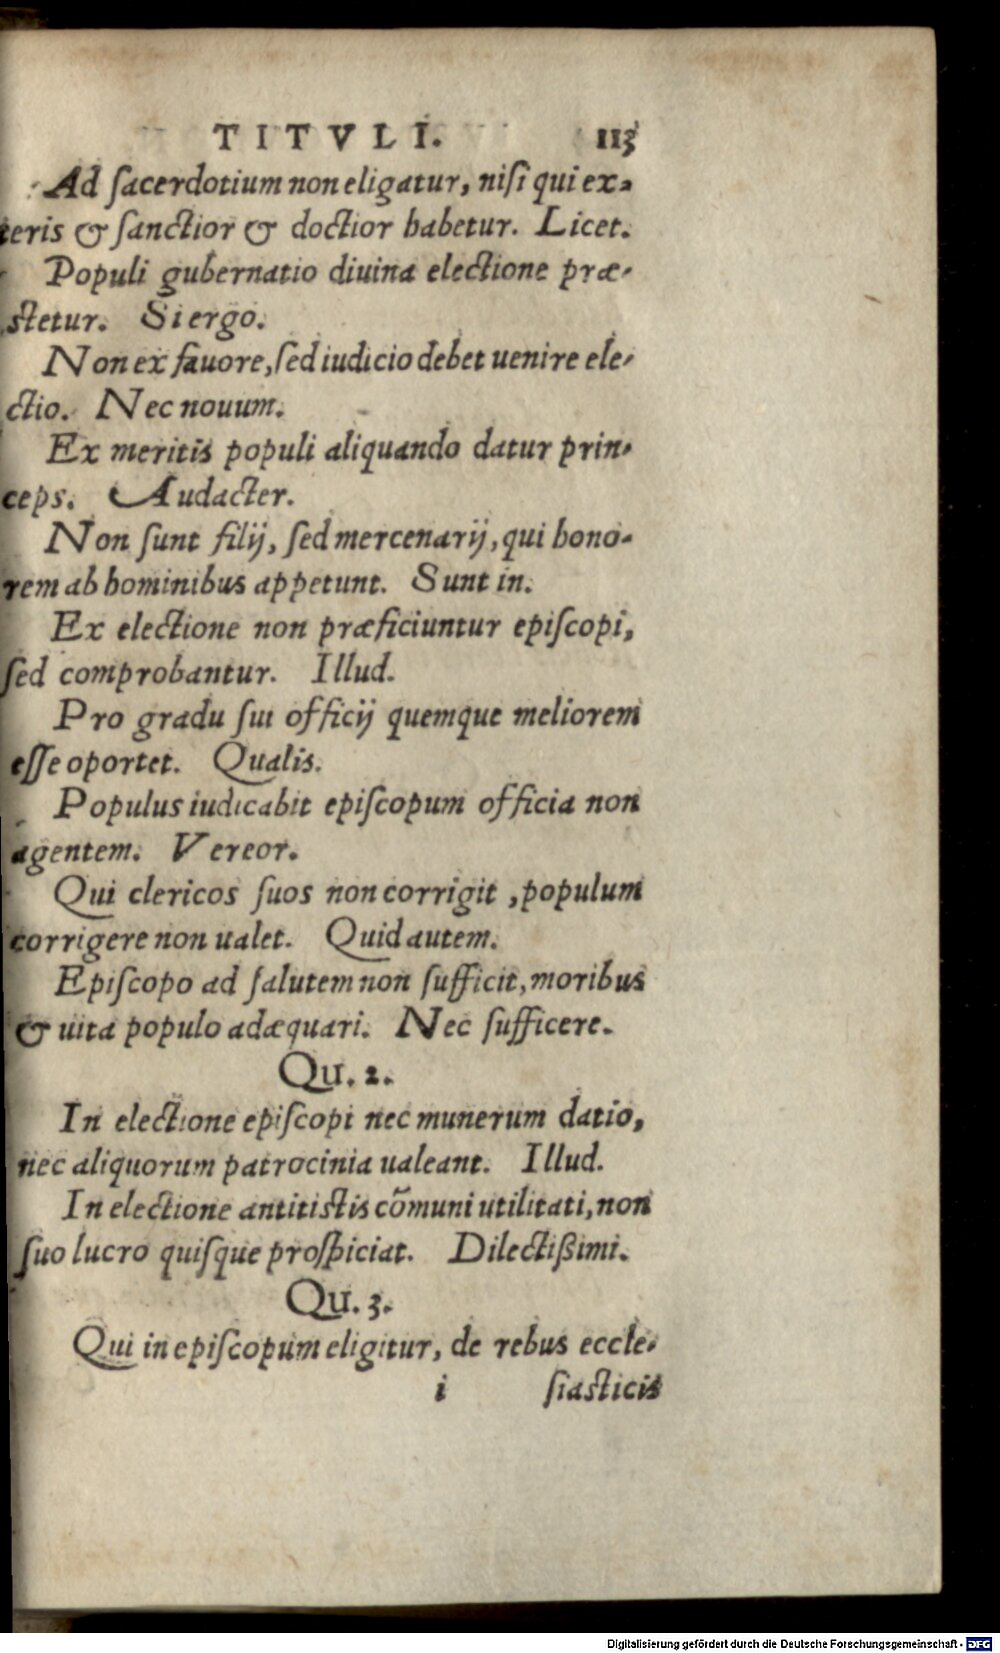 TITVLI. 113
Ad sacerdotium non eligatur, nisi qui ex-
teris & sanctior & doctior habetur. Licet.
Populi gubernatio diuina electione præ-
stetur. Si ergo.
Non ex fauore, sed iudicio debet uenire ele-
ctio. Nec nouum.
Ex meritis populi aliquando datur prin-
ceps. Audacter.
Non sunt filij, sed mercenarij, qui hono-
rem ab hominibus appetunt. Sunt in.
Ex electione non præficiuntur episcopi,
sed comprobantur. Illud.
Pro gradu sui officij quemque meliorem
esse oportet. Qualis.
Populus iudicabit episcopum officia non
agentem. Vereor.
Qui clericos suos non corrigit, populum
corrigere non ualet. Quid autem.
Episcopo ad salutem non sufficit, moribus
& uita populo adæquari. Nec sufficere.
Qu. 2.
In electione episcopi nec munerum datio,
nec aliquorum patrocinia ualeant. Illud.
In electione antitistis cōmuni utilitati, non
suo lucro quisque prospiciat. Dilectißimi.
Qu. 3.
Qui in episcopum eligitur, de rebus eccle-
i siasticis
Digitalisierung gefördert durch die Deutsche Forschungsgemeinschaft - DFG